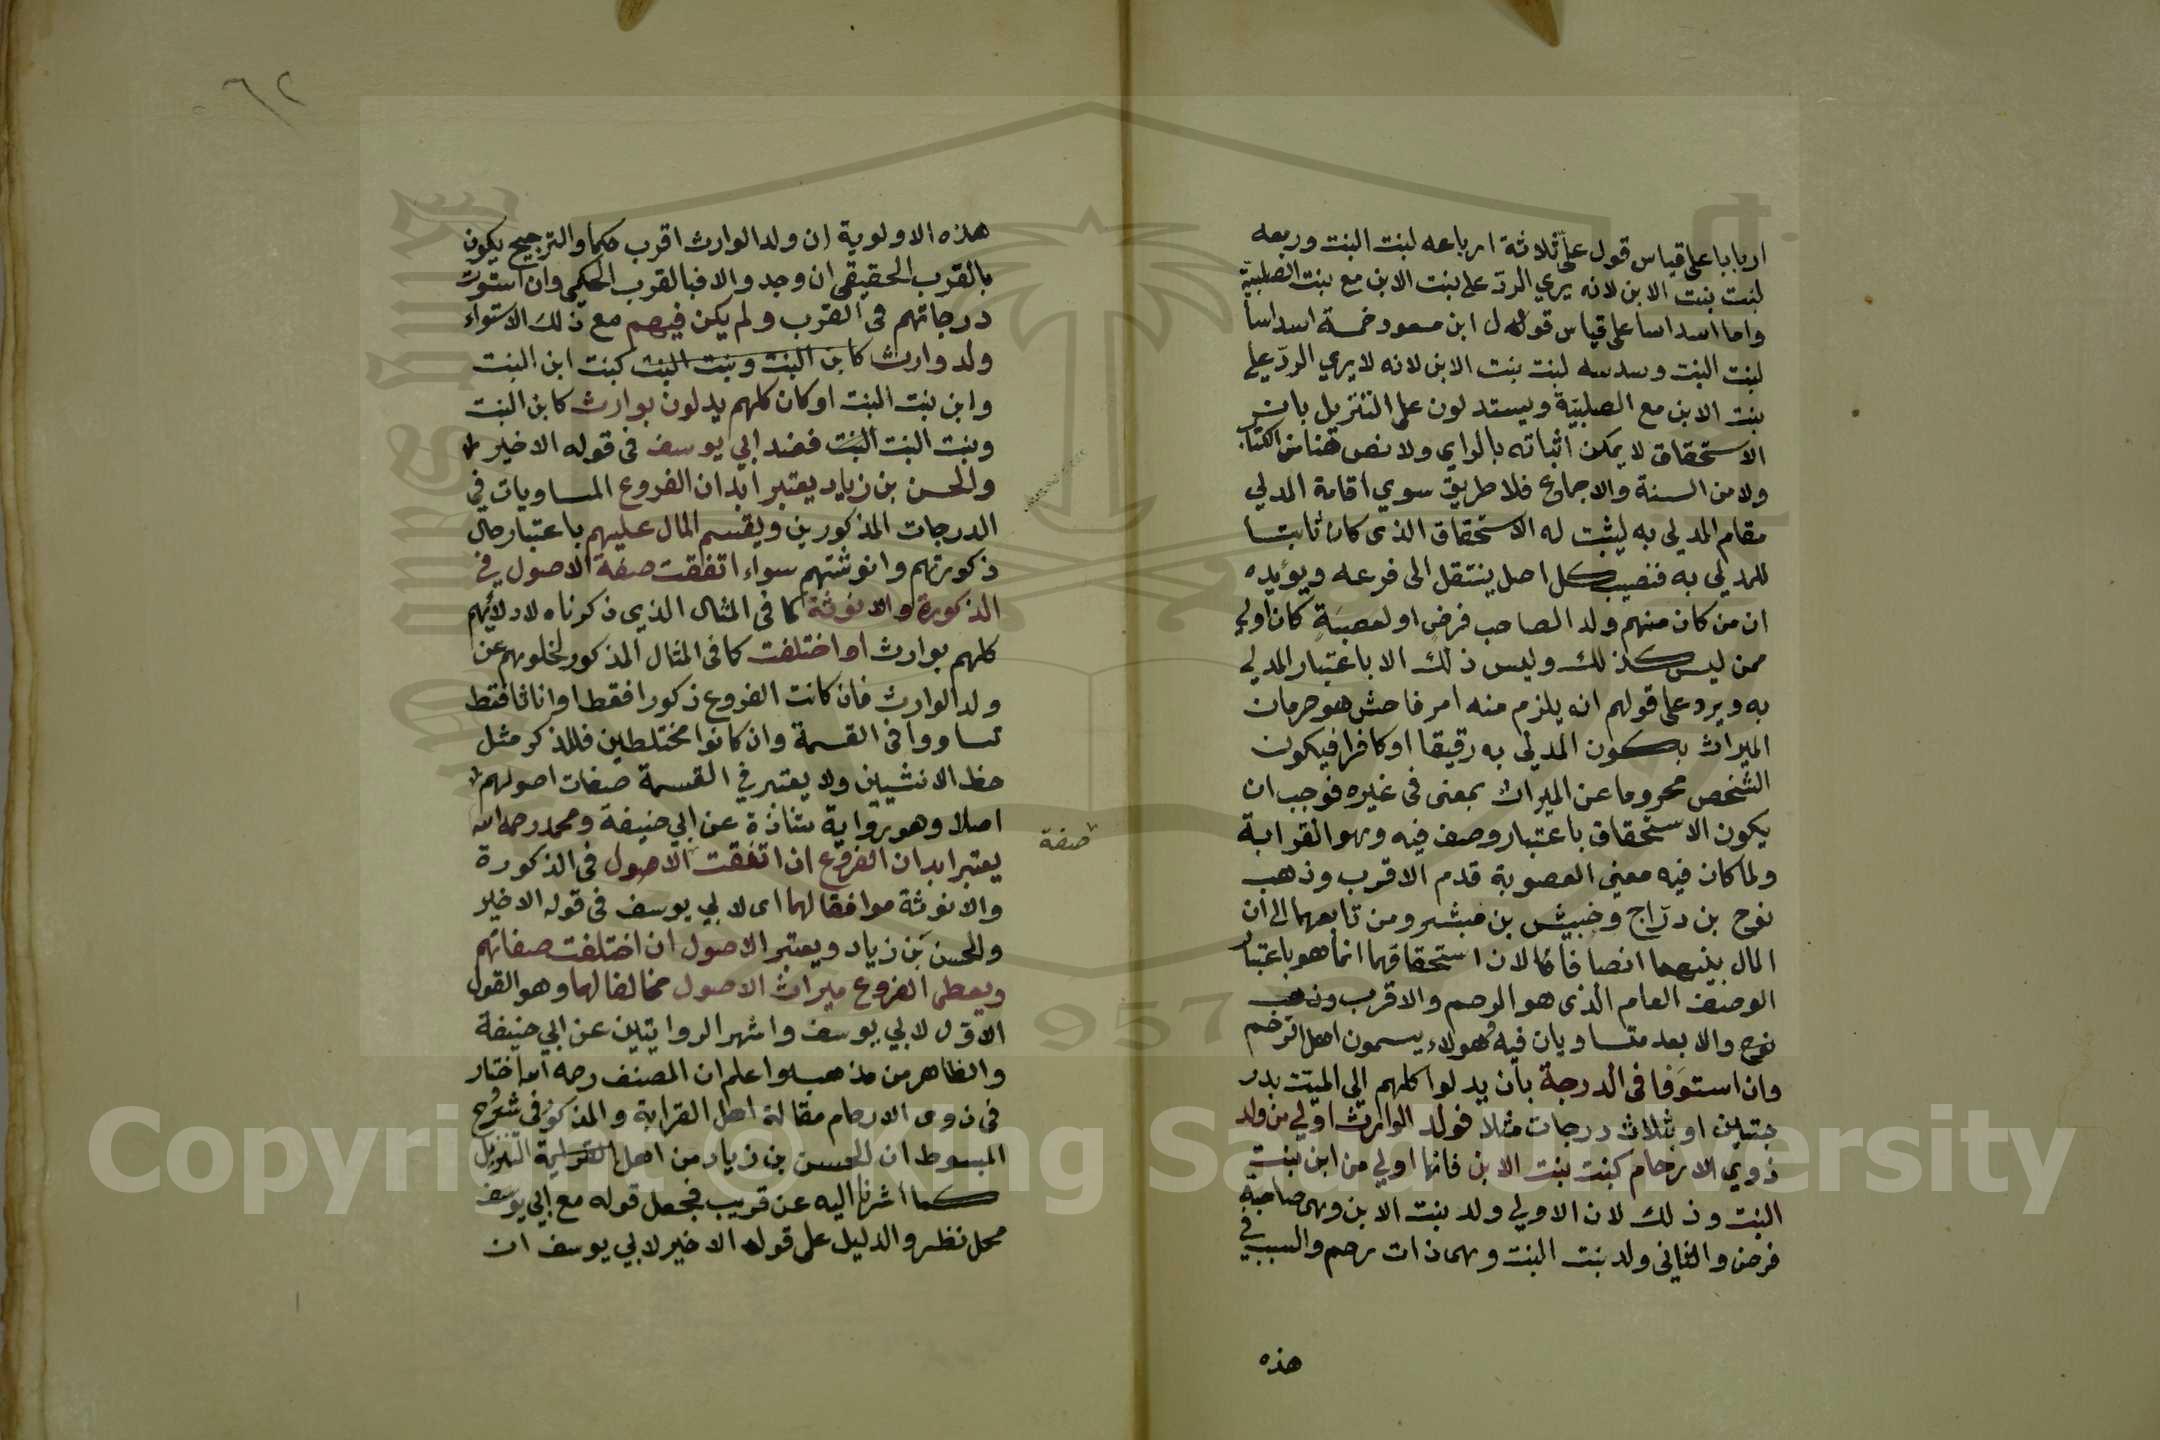 اربابا على قياس قول علي ثلاثة ارباعه لبنت البنت وربعه
لبنت بنت الابن لانه يري الردّ على بنت الابن مع بنت الصلبيّة
واما اسداسا على قياس قوله ل ابن مسعود خمسة اسداسا
لبنت البنت وسدسه لبنت بنت الابن لانه لا يري الردّ على
بنت الابن مع الصلبيّة ويستدلون على التنزيل بان
الاستحقاق لا يمكن اثباته بالراي ولا نص هنا من الكتاب
ولا من السنة والاجماع فلا طريق سوي اقامة المدلي
مقام المدلى به ليثبت له الاستحقاق الذى كان ثابتا
للمدلى به فنصيب كل اصل ينتقل الى فرعه ويؤيده
ان من كان منهم ولد الصاحب فرض او لعصبَةٍ كان اولي
ممن ليس كذلك وليس ذلك الا باعتبار المدلي
به ويرد على قولهم انه يلزم منه امر فاحش هو حرمان
الميراث بكون المدلى به رقيقا او كافرا فيكون
الشخص محروما عن الميراث بمعنى فى غيره فوجب ان
يكون الاستحقاق باعتبار وصف فيه وهو القرابة
ولما كان فيه معنى العصوبة قدم الاقرب وذهب
نوح بن درّاج وحبيش بن مبشر ومن تابعهما الى ان
المال بينهما انصافا قالا لان استحقاقهما انما هو باعتبار
الوصف العام الذى هو الرحم والاقرب
والابعد متساويان فيه وهولاء يسمون اهل الرحم
وان استوفا فى الدرجة بأن يدلوا كلهم الى الميت بدر
جتين او بثلاث درجات مثلا فولد الوارث اولي من ولد
ذوي الارحام كبنت بنت الابن فانها اولي من ابن بنت
البنت وذلك لان الاولي ولد بنت الابن وهى صاحبة
فرض والثانى ولد بنت البنت وهى ذات رحم والسبب في
هذه
٦٢
هذه الاولوية ان ولد الوارث اقرب حكما والترجيح يكون
بالقرب الحقيقى ان وجد والا فبالقرب الحكمى وان استوت
درجاتهم فى القرب ولم يكن فيهم مع ذلك الاستواء
ولد وارث كابن البنت وبنت البنت كبنت ابن البنت
وابن بنت البنت او كان كلهم يدلون بوارث كابن البنت
وبنت البنت البنت فعند ابى يوسف فى قوله الاخير
والحسن بن زياد يعتبر ابدان الفروع المساويات في
الدرجات المذكورين ويقسم المال عليهم باعتبار حال
ذكورتهم وانوثتهم سواء اتفقت صفة الاصول في
الذكورة والانوثة كما فى المثال الذى ذكرناه لادلائهم
كلهم بوارث او اختلفت كما فى المثال المذكور لخلوهم عن
ولد الوارث فان كانت الفروع ذكورا فقط او اناثا فقط
تساووا فى القسمة وان كانوا مختلطين فللذكر مثل
حظ الانثيين ولا يعتبر في القسمة صفات اصولهم
اصلا وهو رواية شاذة عن ابى حنيفة ومحمد رحمه الله
يعتبر ابدان الفروع ان اتفقت الاصول فى الذكورة
صفة
والانوثة موافقا لهما اى لابي يوسف فى قوله الاخير
وللحسن بن زياد ويعتبر الاصول ان اختلفت صفاتهم
ويعطى الفروع ميراث الاصول مخالفا لهما وهو القول
الاول لابي يوسف واشهر الروايتين عن ابي حنيفة
والظاهر من مذهبه واعلم ان المصنف رحمه الله اختار
فى ذوى الارحام مقالة اهل القرابة والمذكور فى شروح
المبسوط ان الحسن بن زياد من اهل التنزيل
كما اشرنا اليه عن قريب فجعل قوله مع ابى يوسف
محل نظر والدليل على قوله الاخير لابي يوسف ان
Copyright © King Saud University
1957